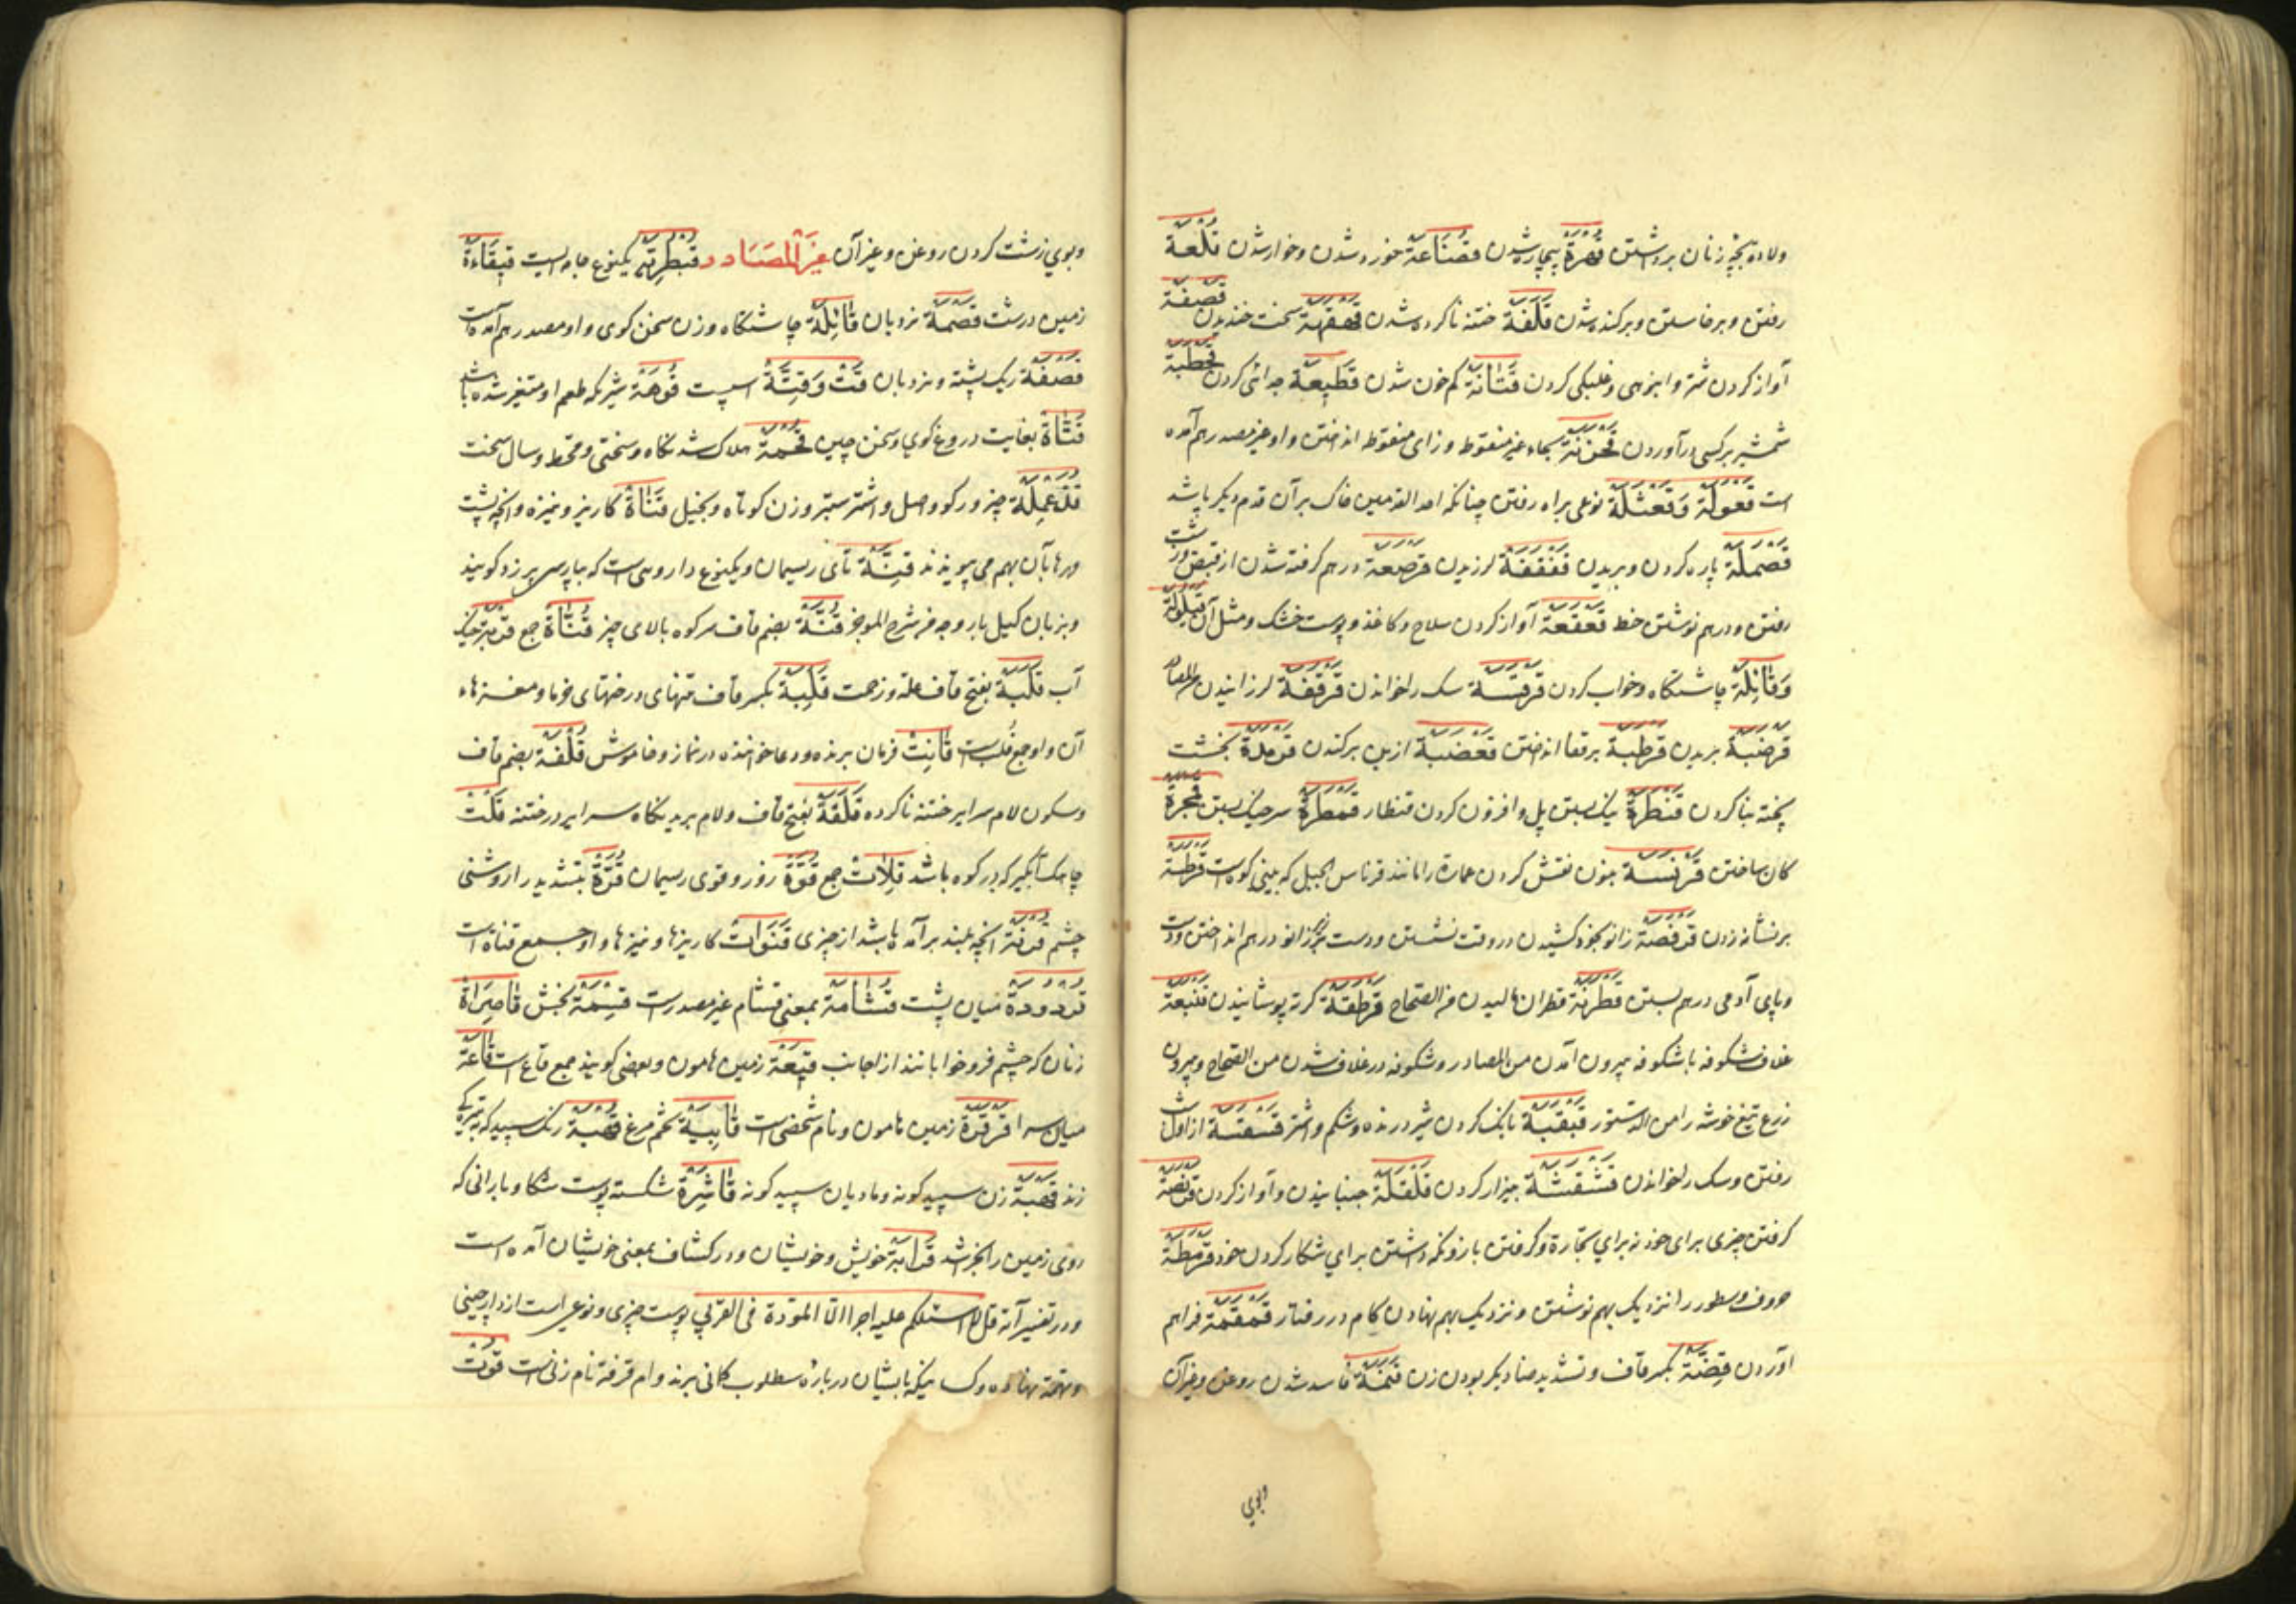 ولاده بچه زنان برداشتن قهرة بیچاره شدن قصناعة خورد شدن وخوار شدن قلعة
رفتن و برخاستن و برکنده شدن قلفة ختنه ناکرده شدن قهقهة سخت خندیدن قصفة
آواز کردن شتر و انبوهی و غلبگی کردن قتانة کم خون شدن قطیعة جدائی کردن قحطبة
شمشیر برکسی درآوردن قحزنة بحاء غیر منقوط و زای منقوط انداختن و او غیر مصدر هم آمده
است قعولة وقعثلة نوعی براه رفتن چنانکه احد القدمین خاک بر آن قدم دیگر پاشد
قصملة پاره کردن و بریدن قفقفة لرزیدن قرصعة درهم گرفته شدن از قبض و زشت
رفتن و درهم نوشتن خط قعقعة آواز کردن سلاح و کاغذ و پوست خشک و مثل آن قیلولة
وقائلة چاشتگاه وخواب کردن قرقسة سک را خواندن قرقفة لرزانیدن
قرضبة بریدن قرطبة برقفا انداختن قعضبة از بن برکندن قرمدة بخشت
پخته بنا کردن قنطرة پل و افزون کردن قنطار قمطرة سر خیک بستن قمجرة
کمان ساختن قرنسة بنون نقش کردن عمارة را مانند قرناس الجبل که بینی کوه است قرطبة
بر نشانه زدن قرفصة زانو بخود کشیدن در وقت نشستن و دست بر زانو درهم انداختن و دست
و پای آدمی درهم بستن قطرنة قطران مالیدن من الصحاح قرطقة کرته پوشانیدن قنبعة
غلاف شکوفه با شکوفه بیرون آمدن من المصادر و شکوفه در غلاف شدن من الصحاح و بیرون
زرع تیغ خوشه را من الدستور قبقبة بانک کردن شیر درنده و شکم و اشتر قسقسة از اول شب
رفتن و سک را خواندن قشقشة بیزار کردن قلقلة جنبانیدن و آواز کردن قنصة
گرفتن چیزی برای خود نه برای تجارة و گرفتن باز و نگه داشتن برای شکار کردن خود قرمطة
حروف وسطور را نزدیک بهم نوشتن و نزدیک بهم نهادن گام در رفتار قمقمة فراهم
آوردن قضة بکسر قاف و تشدید ضاد بکر بودن زن قنمة فاسد شدن روغن و غیر آن
وبوی
وبوی زشت کردن روغن و غیر آن غیر المصادر قبطریة یکنوع جامه ایست قیقاءة
زمین درشت قصمة نردبان قائلة چاشتگاه و زن سخن گوی و او مصدر هم آمده است
قصفة ریک پشته و نردبان قت وقتة اسپست قوهة شیر که طعم او متغیر شده باشد
قتاتة بغایت دروغ گوی و سخن چین قحمة هلاک شدنگاه و سختی و قحط و سال سخت
قذعملة چیز و رکو و اصل و اشتر ستبر و زن کوتاه و بخیل قناة کاریز و نیزه و آنچه پشت
و رهابان بهم می پیوندند قنة تای ریسمان و یکنوع داروی است که بپارسی برزد گویند
و بزبان گیل باروجه فی شرح الموجز قنة بضم قاف سر کوه بالای چیز
آب قلبة بفتح قاف علة و زحمت قلبة بکسر قاف تنهای درختهای خرما و مغزهاء
آن و او جمع قلب است قانت فرمان برنده و دعا خواننده در نماز و خاموش قلفة بضم قاف
وسکون لام سرایر ختنه ناکرده قلفة بفتح قاف ولام بریدنگاه سرایر در ختنه قلت
چاهک آبگیر که در کوه باشد قلات جمع قوة زور و قوی ریسمان قرة بتشدید را روشنی
چشم قرنة آنچه بلند برآمده باشد از چیزی قنوات کاریزها و نیزها و او جمع قناة است
قردودة میان پشت قشامة بمعنی قشام غیر مصدرست قسمة بخش قاصراة
زنان که چشم فرو خوابانند از اجانب قیعة زمین هامون و بعضی گویند جمع قاع است قاعة
میان سرا قرقرة زمین هامون و نام شخصی است قابیة تخم مرغ قهبة رنک سپید که به تیرگی
زند قهبة زن سپید گونه و مادیان سپید گونه قاشرة شکسته پوست شکا و بارانی که
روی زمین را بخراشد قرابة خویش و خویشان و در کشاف بمعنی خویشان آمده است
و در تفسیر آیه قل لا اسئلکم علیه اجرا الا المودة فی القربی پوست چیزی و نوعی است از دارچینی
و تهمة نهاده و کسانیکه بایشان درباره مطلوب گمانی برند و ام قرفة نام زنی است قوت